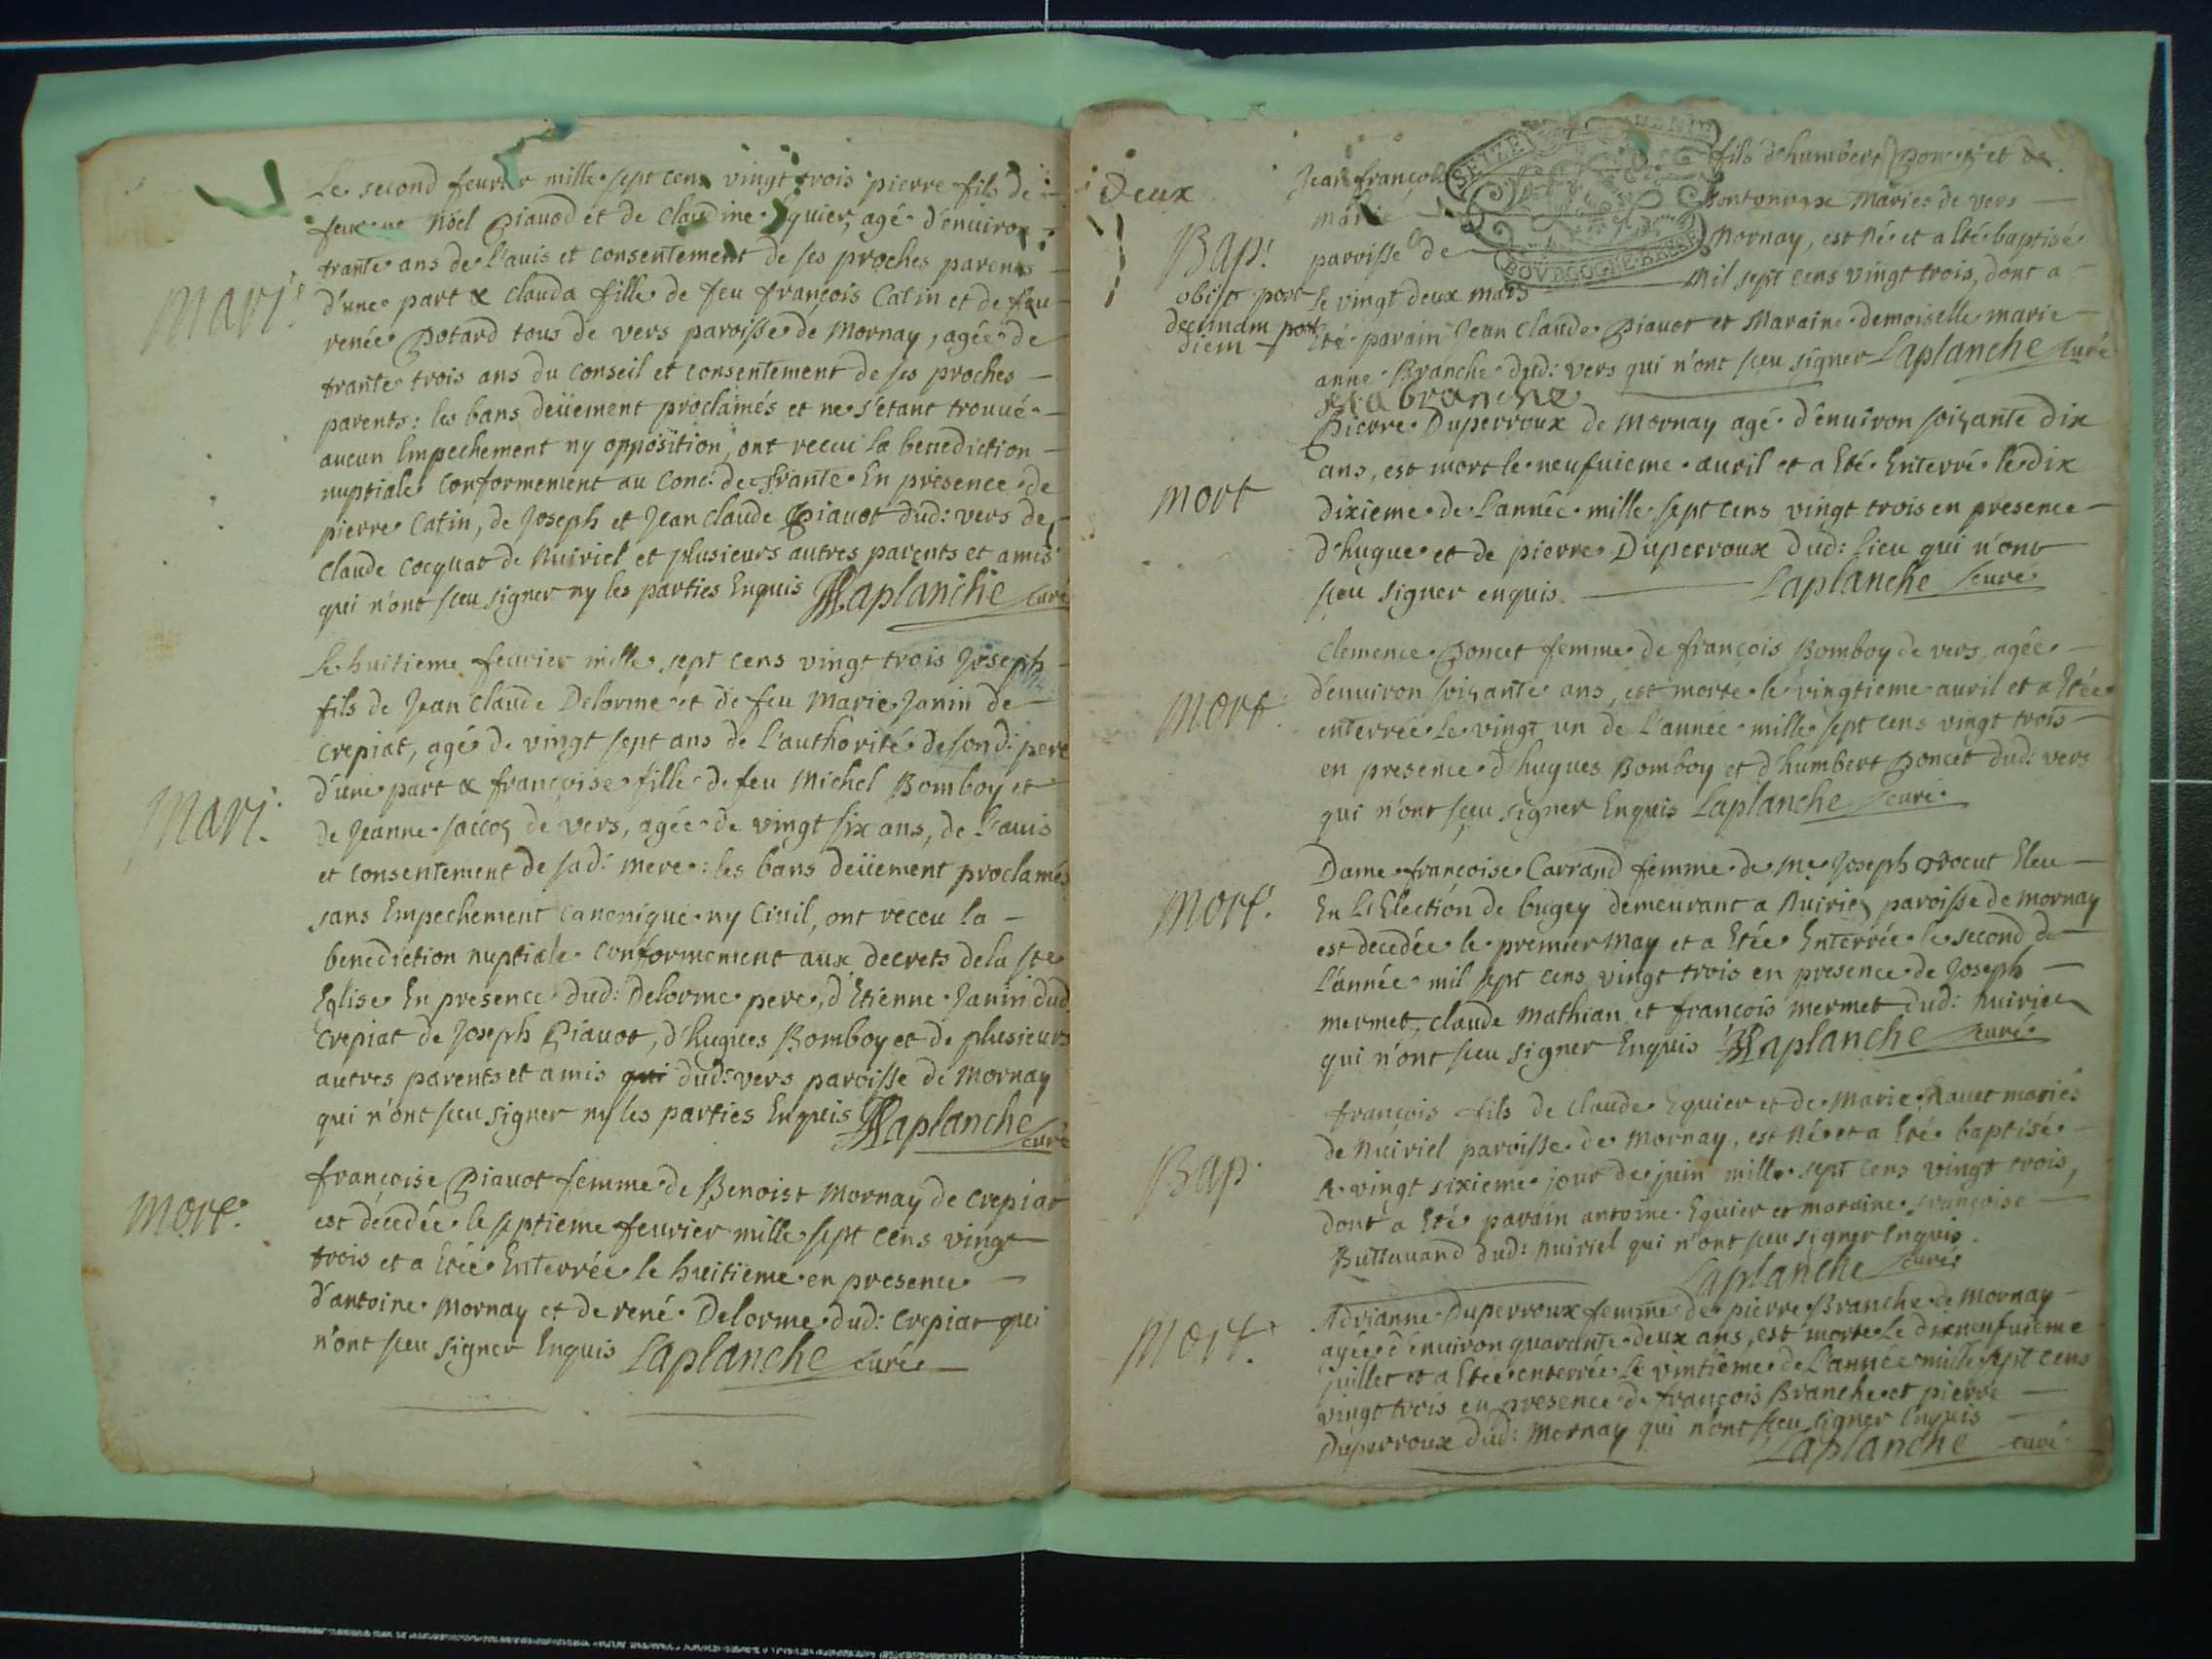 Le second feurier mille sept cens vingt trois pierre fils de
feu Nöel Piauod et de Claudine Eguier, agé d'enuiron
trante ans de l'auis et consentement de ses proches parents
Mari:
d'une part & clauda fille de feu françois Catin et de feu
renée Potard tous de vers paroisse de Mornay, agée de
trante trois ans du conseil et consentement de ses proches
parents: les bans deüement proclamés et ne s'etant trouué
aucun Empechement ny opposition, ont receu la benediction
nuptiale conformement au Conc: de Trante En presence de
pierre Catin, de Joseph et Jean claude Piauot dud: vers de
Claude Cocquat de Nuiriel et plusieurs autres parents et amis
qui n'ont sceu signer ny les parties Enquis Laplanche curé
Le huitieme feurier mille sept cens vingt trois Joseph
fils de Jean Claude Delorme et de feu Marie Janin de
Crepiat, agé de vingt sept ans de l'authorité de sond: pere
d'une part & françoise fille de feu Michel Bomboy et
Mari:
de Jeanne de vers, agée de vingt six ans, de l'auis
et consentement de sad: mere: les bans deüement proclamés
sans Empechement canonique ny Ciuil, ont receu la
benediction nuptiale conformement aux decrets de la ste
Eglise En presence dud: Delorme pere, d'Etienne Janin dud:
Crepiat de Joseph Piauot, d'hugues Bomboy et de plusieurs
autres parents et amis qui dud: vers paroisse de Mornay
qui n'ont sceu signer ny les parties Enquis Laplanche curé
françoise Piauot femme de Benoist Mornay de Crepiat
Mort:
est decedée le septieme feurier mille sept cens vingt
trois et a Etée Enterrée le huitieme en presence
d'antoine Mornay et de rené Delorme dud: Crepiat qui
n'ont sceu signer Enquis Laplanche curé
SEIZE DENIE
BOVRGOGNE BRESSE
Deux
Jean françois fils d'humbert Poncet et de
Marie Mariés de vers
Bap:
paroisse de Mornay, est Né et a Eté baptisé
obiit post
le vingt deux mars Mil sept cens vingt trois, dont a
decimam post
diem
Eté parain Jean Claude Piauot et Maraine demoiselle marie
anne Branche dud: vers qui n'ont sceu signer Laplanche curé
la branche
Pierre Duperroux de Mornay agé d'enuiron soixante dix
ans, est mort le neufuieme auril et a Eté Enterré le dix
mort
dixieme de l'année mille sept cens vingt trois en presence
d'hugue et de pierre Duperroux dud: lieu qui n'ont
sceu signer enquis Laplanche curé
Clemence Poncet femme de françois Bomboy de vers, agée
d'enuiron soixante ans, est morte le vingtieme auril et a Etée
mort
enterrée le vingt un de l'année mille sept cens vingt trois
en presence d'hugues Bomboy et d'humbert Poncet dud: vers
qui n'ont sceu signer Enquis Laplanche curé
Dame françoise Carrand femme de Me Joseph Eleu
mort:
En L'Election de bugey demeurant a Nuiriel paroisse de mornay
est decedée le premier May et a Etée Enterrée le second de
l'année mil sept cens vingt trois en presence de Joseph
mermet, claude Mathian et françois mermet dud: nuiriel
qui n'ont sceu signer Enquis Laplanche curé
françois fils de Claude Eguier et de Marie Rauet mariés
de Nuiriel paroisse de Mornay, est Né et a Eté baptisé
Bap:
le vingt sixieme jour de juin mille sept cens vingt trois,
dont a Eté parain antoine Eguier et maraine françoise
Buttauand dud: nuiriel qui n'ont sceu signer Enquis.
Laplanche curé
Adrianne Duperroux femme de pierre Branche de Mornay
Mort:
agée d'enuiron quarante deux ans, est morte le dixneufuieme
juillet et a Etée enterrée le vintieme de L'année mille sept cens
vingt trois en presence de françois Branche et pierre
Duperroux dud: Mornay qui n'ont sceu signer Enquis
Laplanche curé